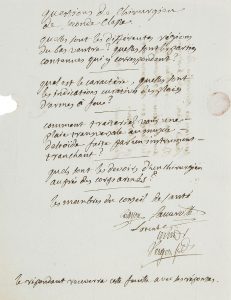 questions de Chirurgien
de seconde Classe
quelles sont les differentes régions
du bas ventre? quelles sont les parties
contenues qui y correspondent?
quel est le caractère, quelles sont
les indications curatives des plaies
d'armes à feu?
comment traiterait on une
plaie transversale au muscle
deltoide faite par un instrument
tranchant?
quels sont les devoirs d'un chirurgien
auprès des corps armés?
les membres du conseil de santé
le répondant renverra cette feuille avec les réponses.